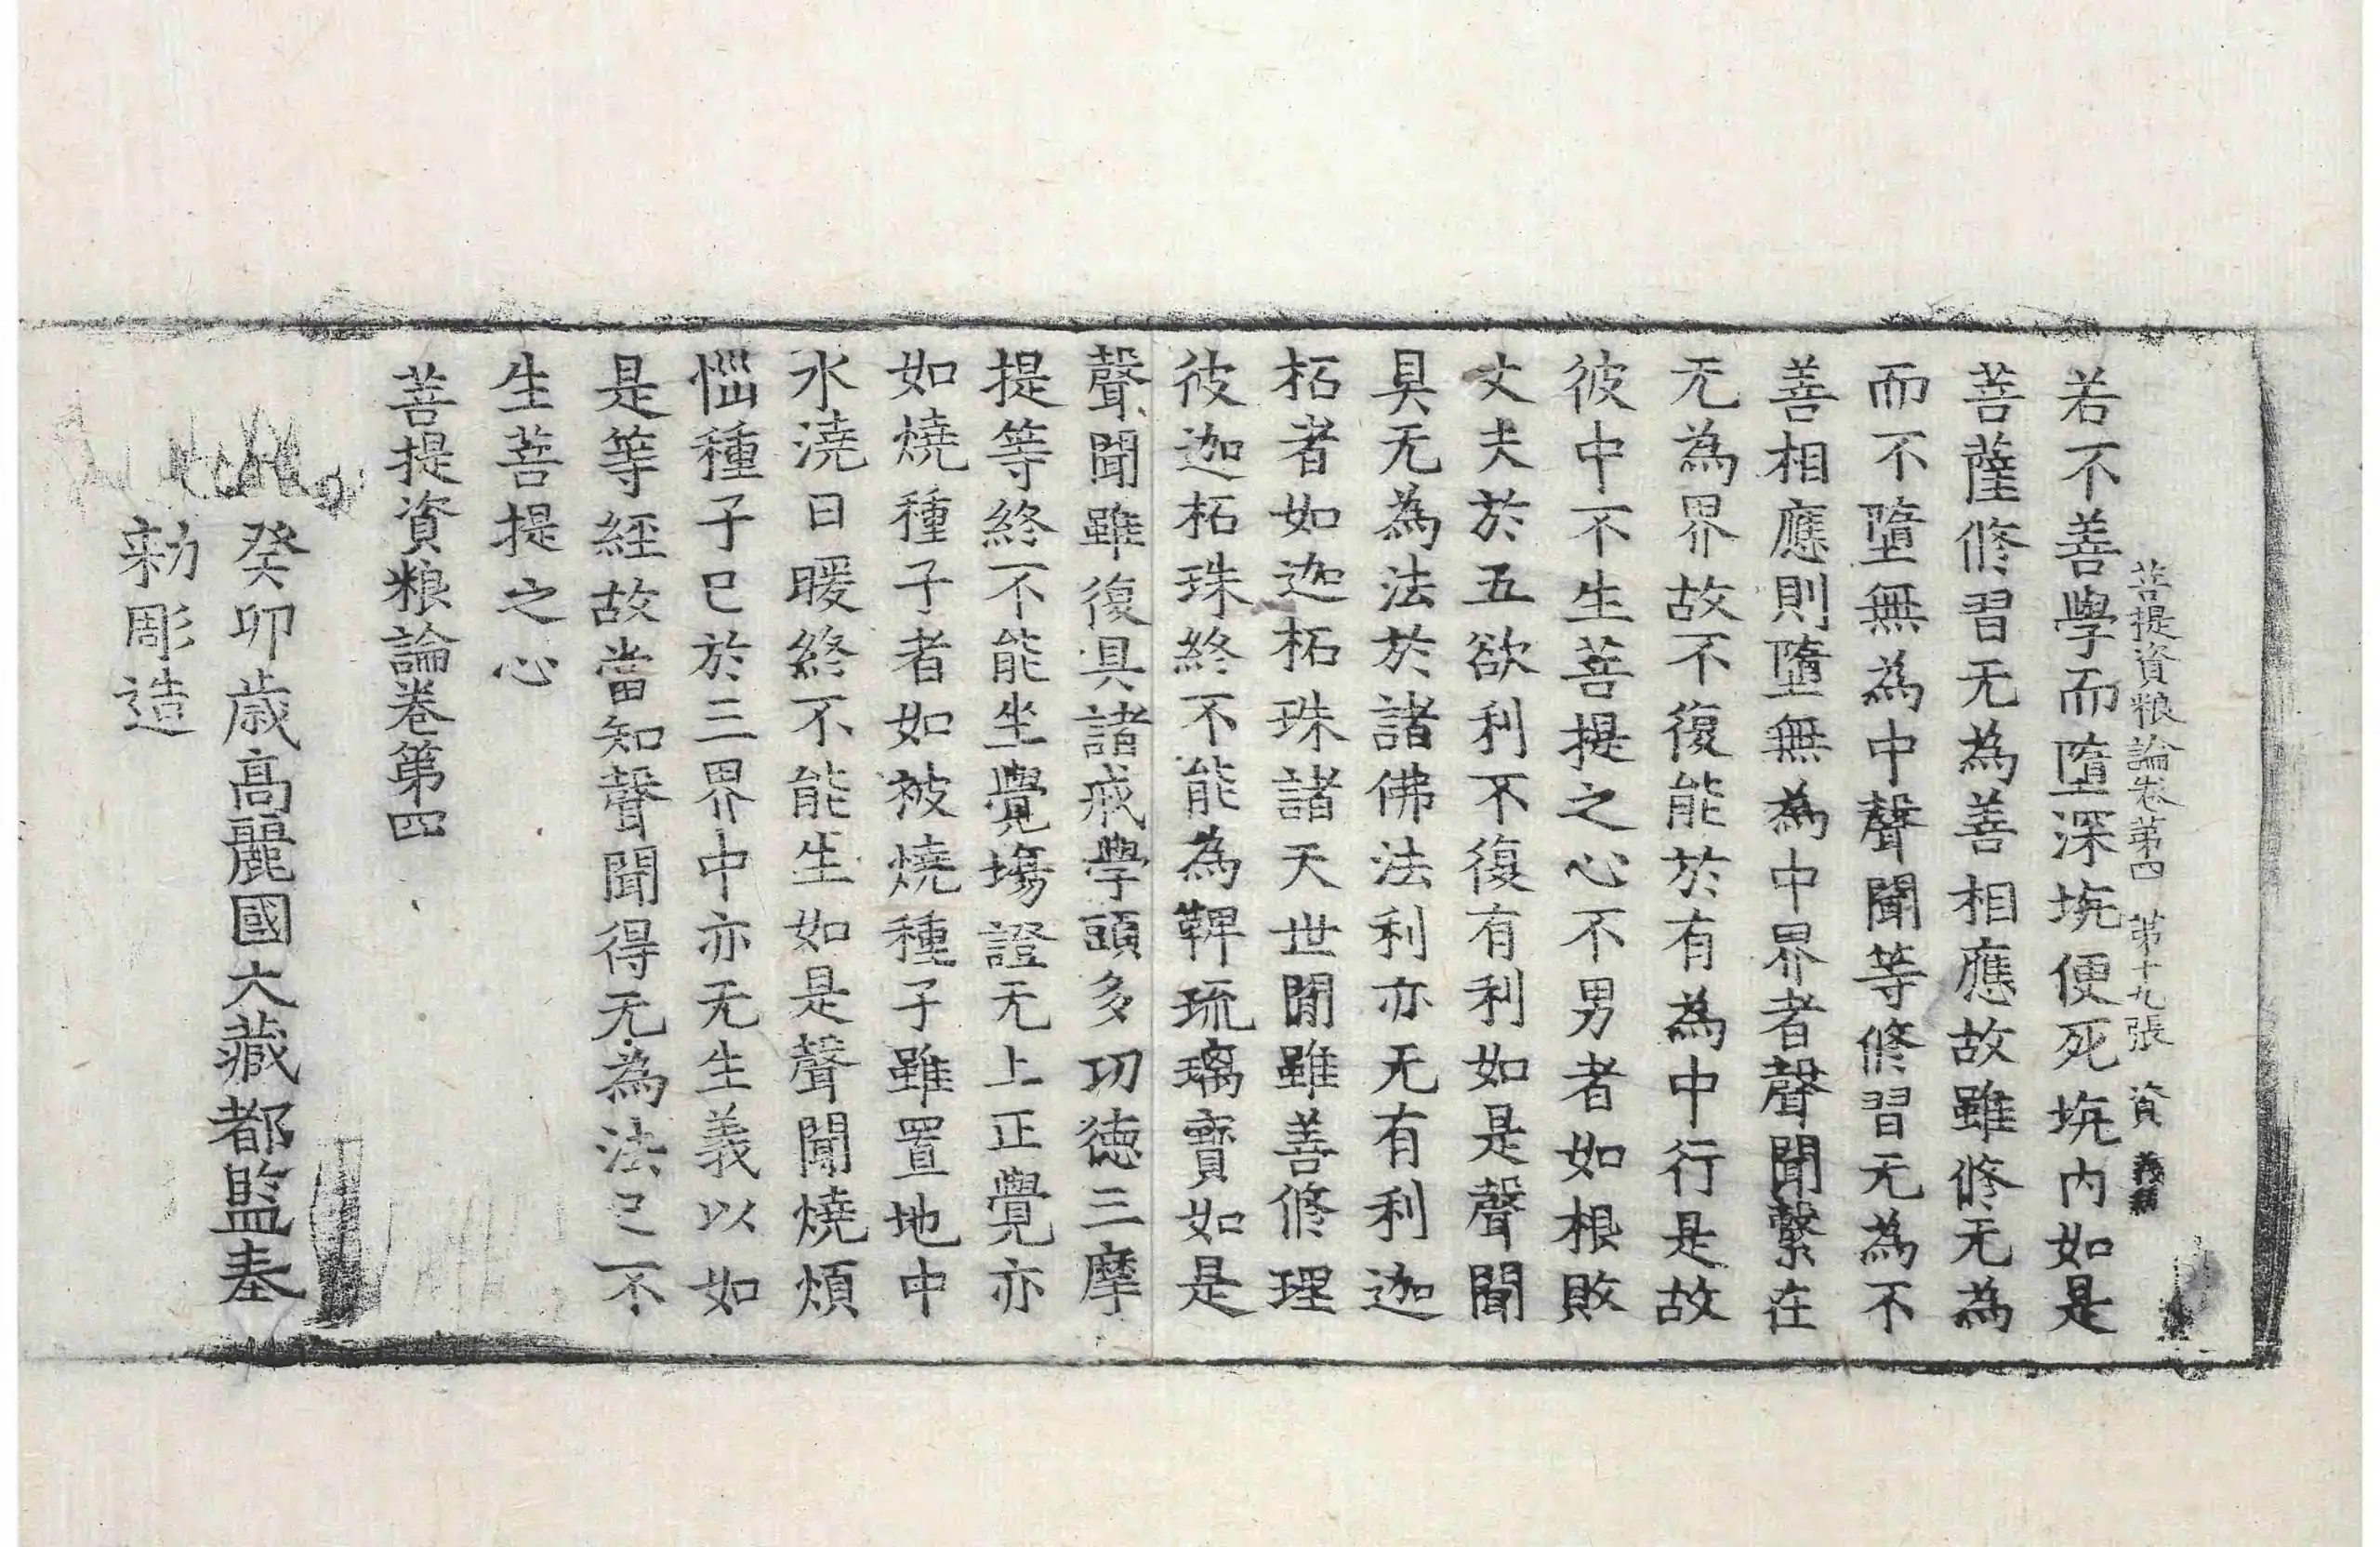 菩提資粮論卷第四　第十九張　資
若不善學而墮深坑便死坑內如是
菩薩修習无為善相應故雖修无為
而不墮無為中聲聞等修習无為不
善相應則墮無為中界者聲聞繫在
无為界故不復能於有為中行是故
彼中不生菩提之心不男者如根敗
丈夫於五欲利不復有利如是聲聞
具无為法於諸佛法利亦无有利迦
柘者如迦柘珠諸天世間雖善修理
彼迦柘珠終不能為鞞琉璃寶如是
聲聞雖復具諸戒學頭多功德三摩
提等終不能坐覺場證无上正覺亦
如燒種子者如被燒種子雖置地中
水澆日暖終不能生如是聲聞燒煩
惱種子已於三界中亦无生義以如
是等經故當知聲聞得无為法已不
生菩提之心
菩提資粮論卷第四
癸卯歲高麗國大藏都監奉
勑彫造